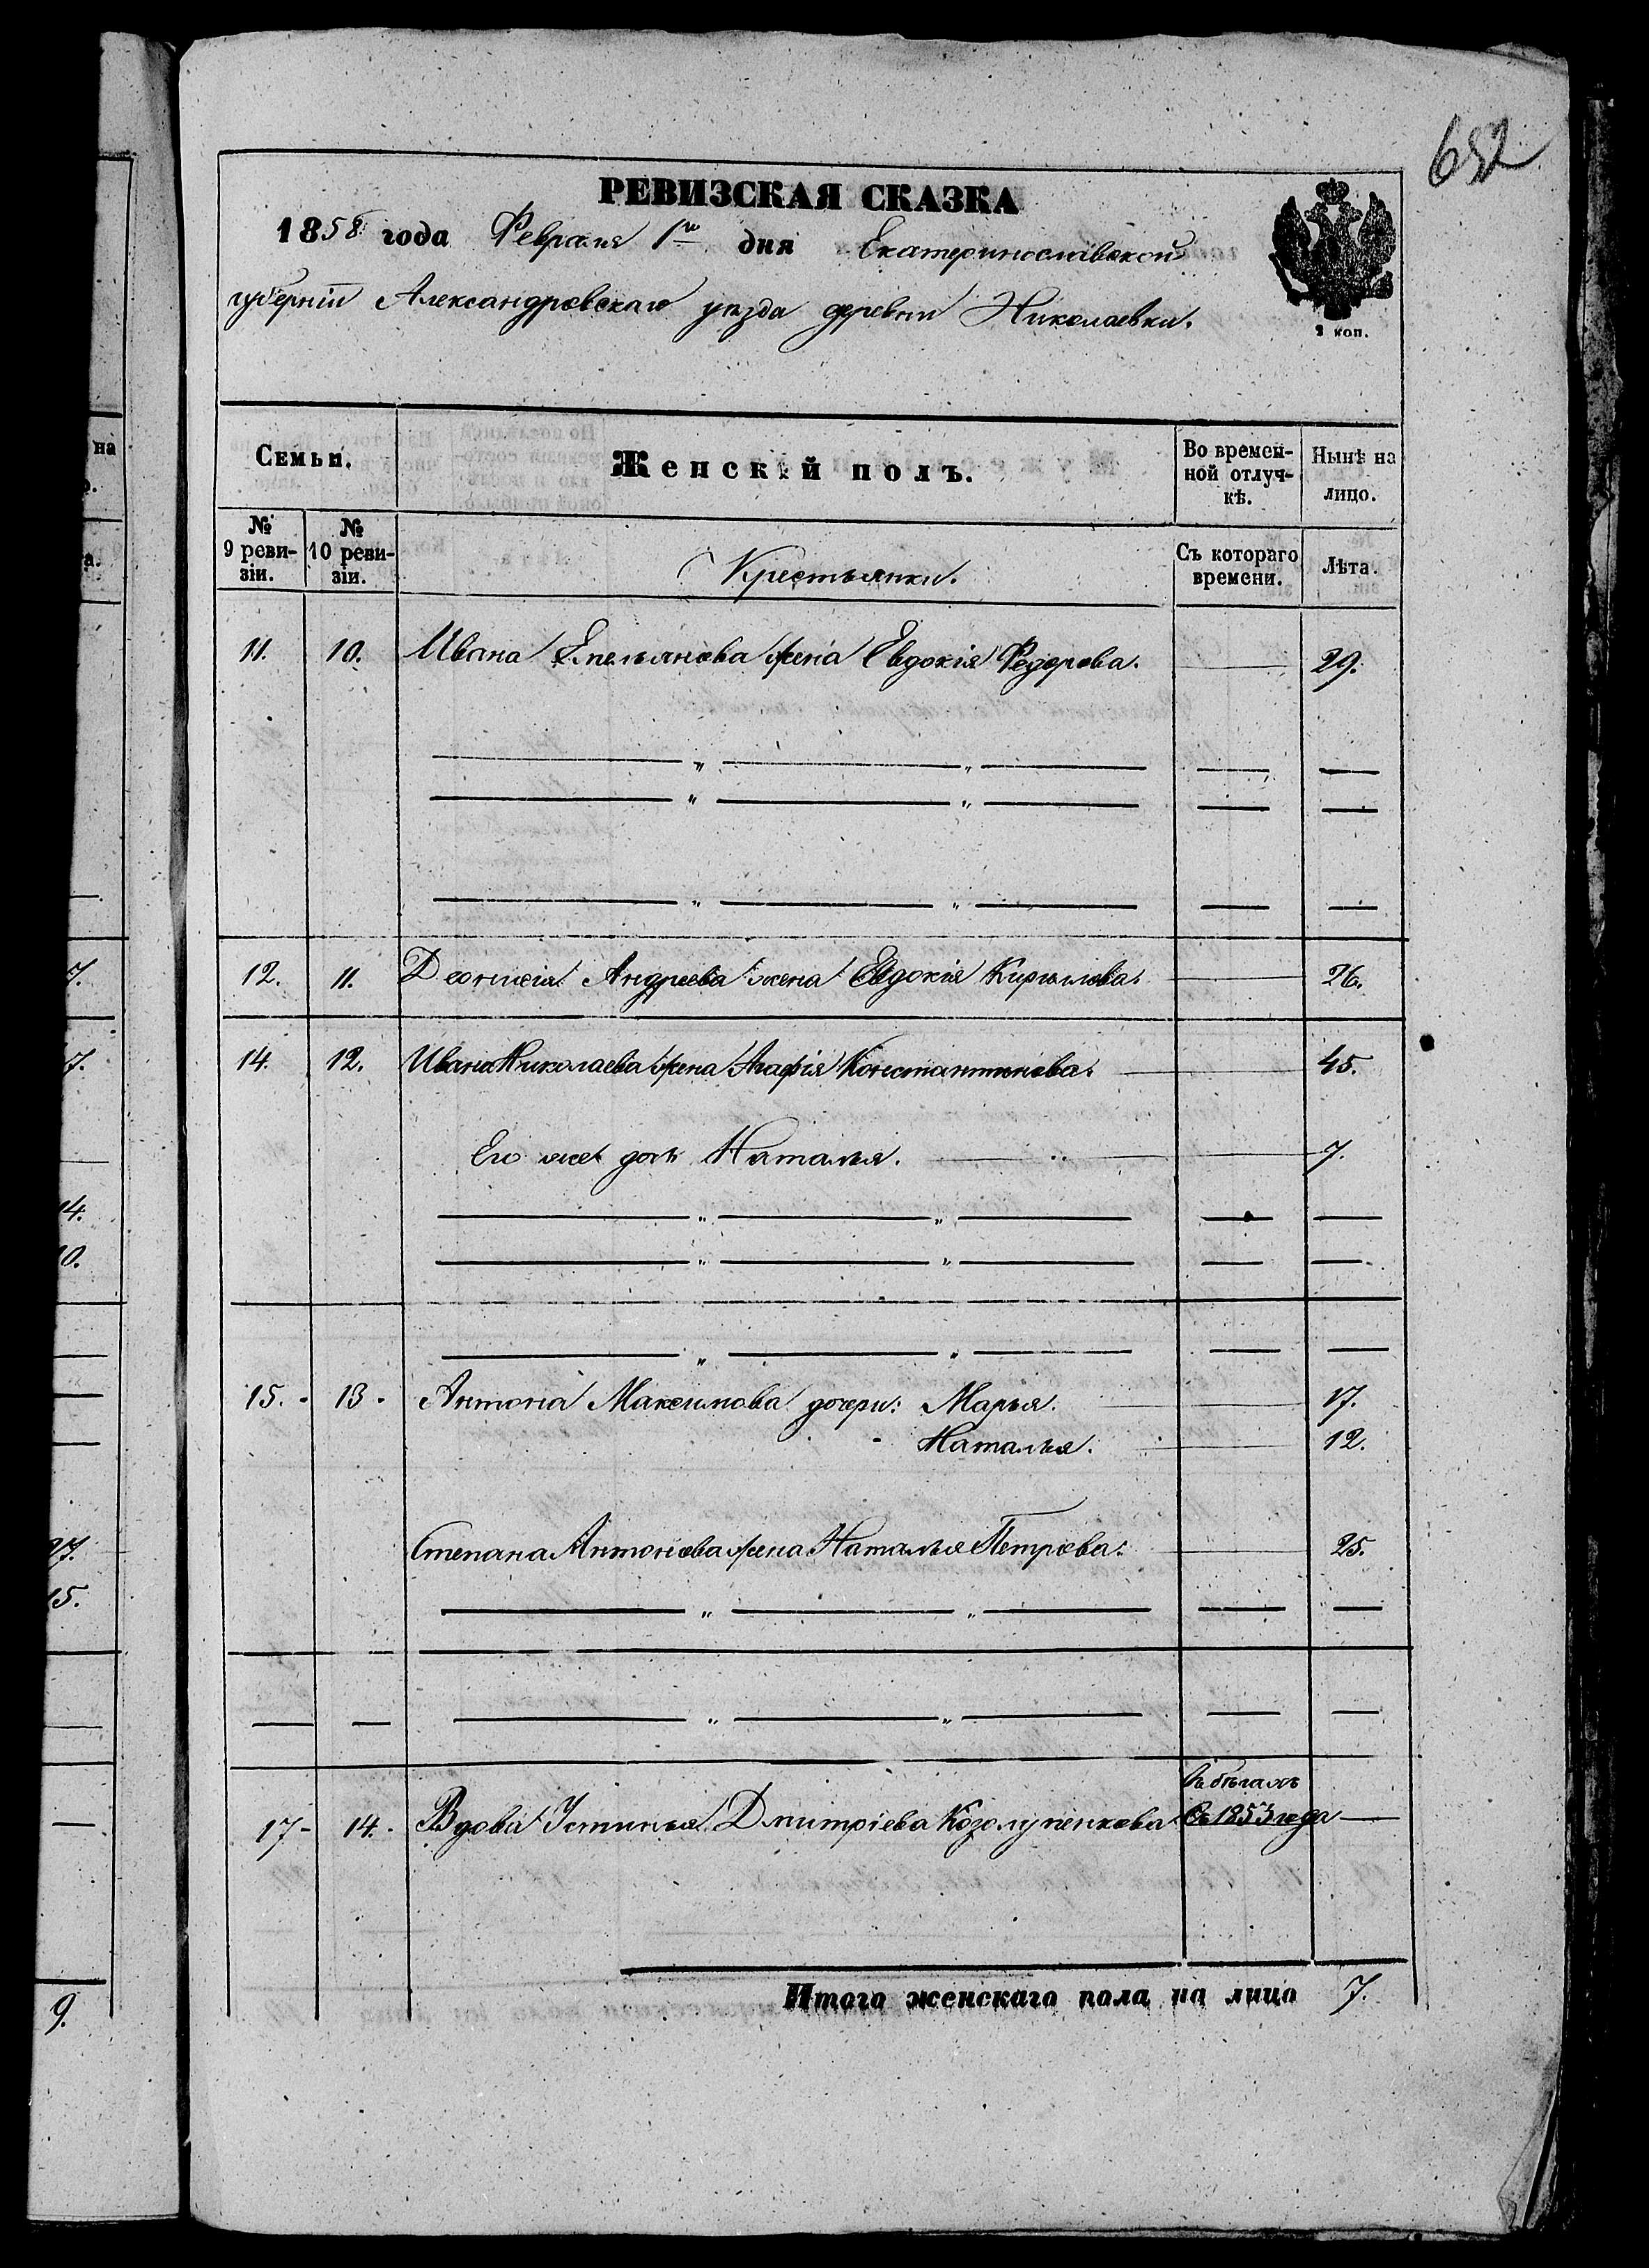 652
РЕВИЗСКАЯ СКАЗКА
1858 года Февраля 1го дня Екатеринославской
губерніи Александровскаго уѣзда деревни Николаевки.
2 коп.
Семьи. Женскій полъ. Во времен-ной отлуч-кѣ. Нынѣ на лицо.
№ 9 реви-зіи. № 10 реви-зіи. Крестьянки. Съ котораго времени. Лѣта.
11. 10. Ивана Емельянова жена Евдокія Федорова. 29.
12. 11. Деонисія Андреева жена Евдокія Кирилова. 26.
14. 12. Ивана Николаева жена Агафія Константинова. 45.
Его же дочь Наталья. 7.
15. 13. Антона Максимова дочери: Марья. 17.
Наталья. 12.
Степана Антонова жена Наталья Петрова. 25.
въ бѣгахъ
17 14. Вдова Устинья Дмитріева Козолупенкова съ 1853 года
Итого женскаго пола на лицо 7.
на
а.
7.
7.
14.
10.
27.
15.
9.